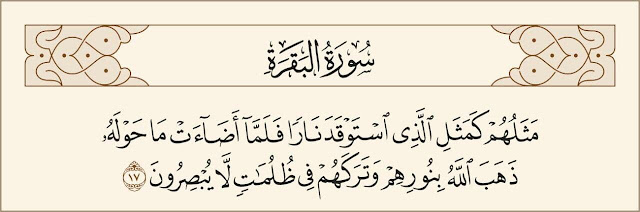 سُورَةُ البَقَرَةِ
مَثَلُهُمْ كَمَثَلِ ٱلَّذِى ٱسْتَوْقَدَ نَارًا فَلَمَّآ أَضَآءَتْ مَا حَوْلَهُۥ
ذَهَبَ ٱللَّهُ بِنُورِهِمْ وَتَرَكَهُمْ فِى ظُلُمَٰتٍ لَّا يُبْصِرُونَ ١٧